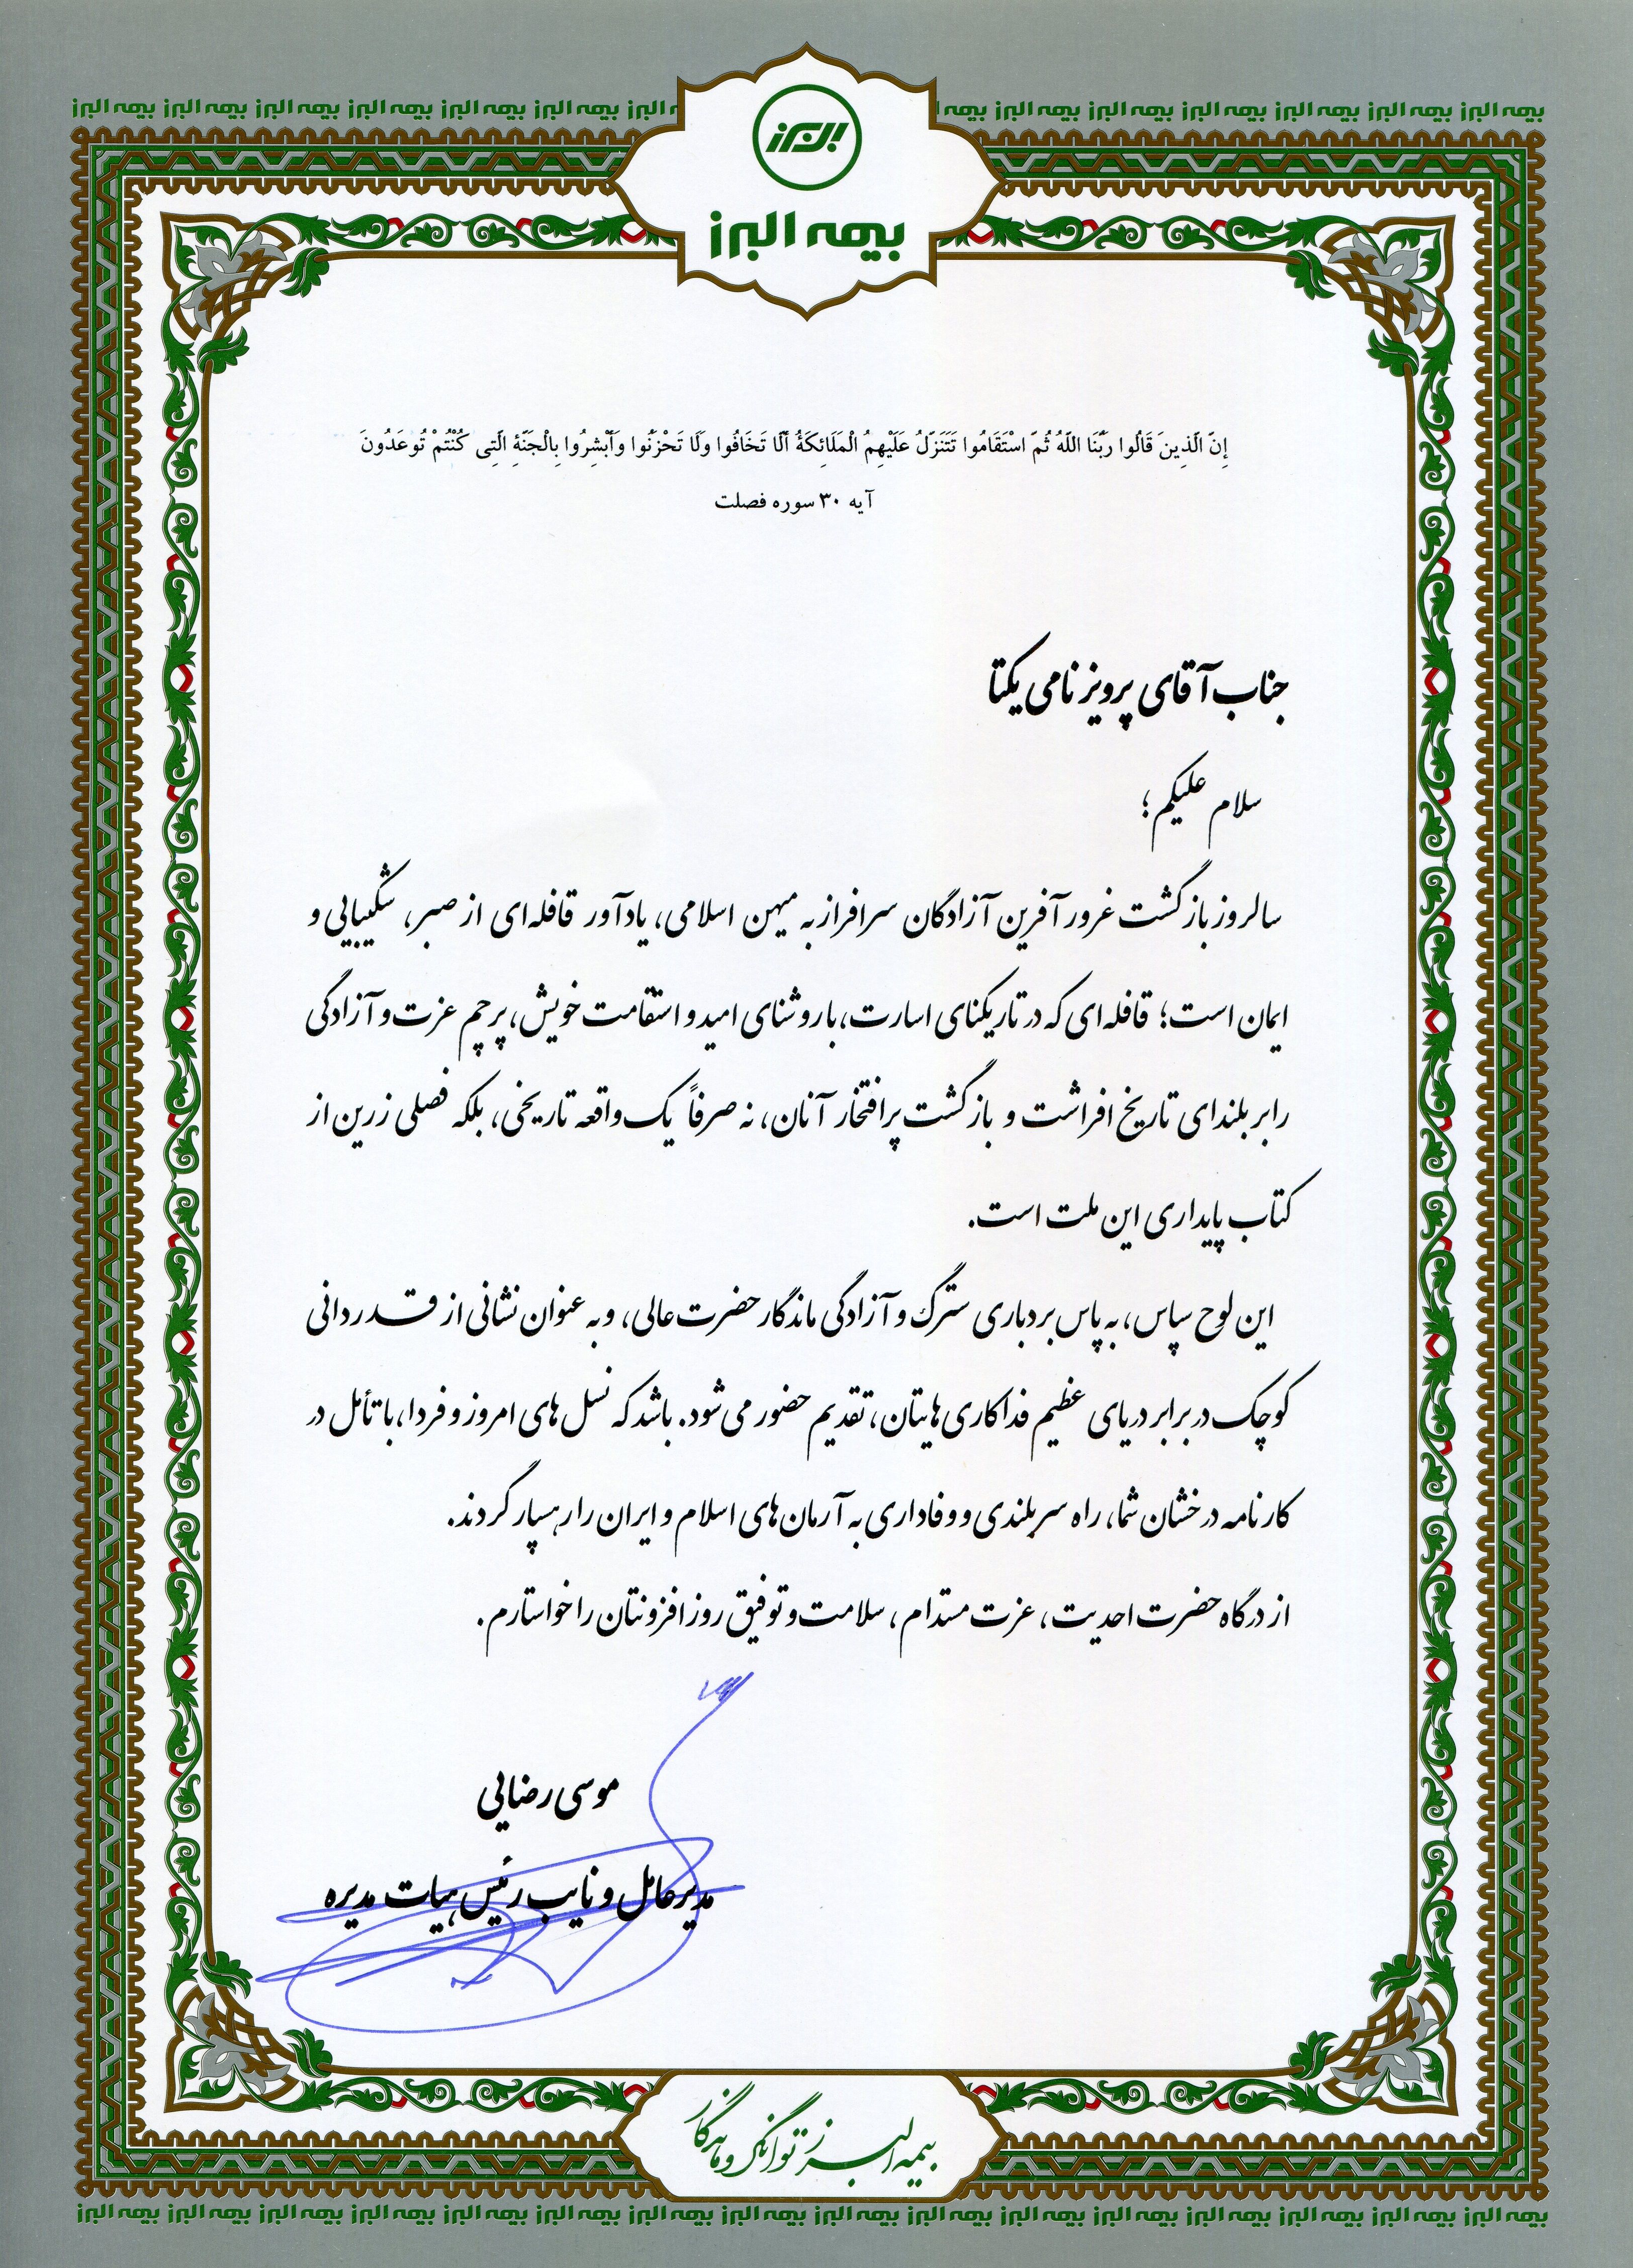 بیمه البرز بیمه البرز بیمه البرز بیمه البرز بیمه البرز بیمه البرز بیمه البرز بیمه البرز بیمه البرز بیمه البرز بیمه البرز بیمه البرز بیمه البرز
البرز
بیمه البرز
إِنَّ الَّذِينَ قَالُوا رَبُّنَا اللَّهُ ثُمَّ اسْتَقَامُوا تَتَنَزَّلُ عَلَيْهِمُ الْمَلَائِكَةُ أَلَّا تَخَافُوا وَلَا تَحْزَنُوا وَأَبْشِرُوا بِالْجَنَّةِ الَّتِی کُنْتُمْ تُوعَدُونَ
آیه ۳۰ سوره فصلت
جناب آقای پرویز نامی یکتا
سلام علیکم؛
سالروز بازگشت غرور آفرین آزادگان سرافراز به میهن اسلامی، یادآور قافله‌ای از صبر، شکیبایی و
ایمان است؛ قافله‌ای که در تاریکنای اسارت، با روشنای امید و استقامت خویش، پرچم عزت و آزادگی
را بر بلندای تاریخ افراشت و بازگشت پرافتخار آنان، نه صرفاً یک واقعه تاریخی، بلکه فصلی زرین از
کتاب پایداری این ملت است.
این لوح سپاس، به پاس بردباری سترگ و آزادگی ماندگار حضرت عالی، و به عنوان نشانی از قدردانی
کوچک در برابر دریای عظیم فداکاری هایتان، تقدیم حضور می شود. باشد که نسل های امروز و فردا، با تأمل در
کارنامه درخشان شما، راه سربلندی و وفاداری به آرمان های اسلام و ایران را رهسپار گردند.
از درگاه حضرت احدیت، عزت مستدام، سلامت و توفیق روزافزونتان را خواستارم.
موسی رضایی
مدیرعامل و نایب رئیس هیات مدیره
بیمه البرز توانگر و ماندگار
بیمه البرز بیمه البرز بیمه البرز بیمه البرز بیمه البرز بیمه البرز بیمه البرز بیمه البرز بیمه البرز بیمه البرز بیمه البرز بیمه البرز بیمه البرز بیمه البرز بیمه البرز بیمه البرز